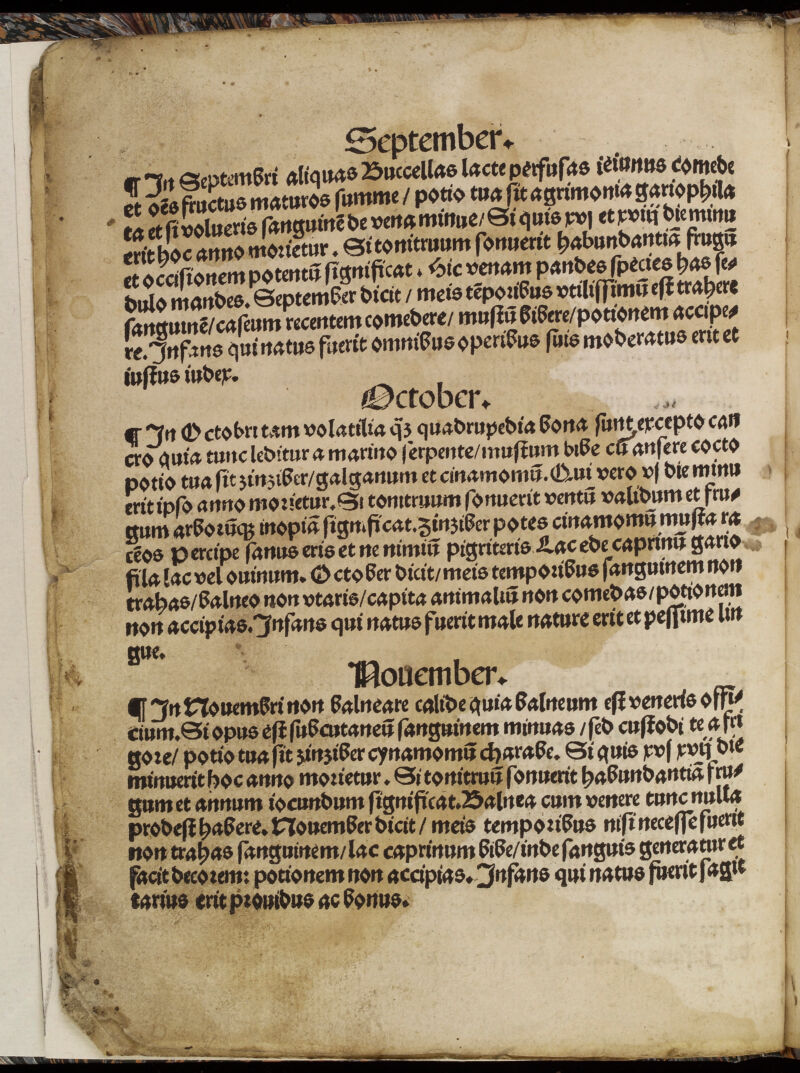 September.
¶ In Septembri aliquas Buccellas lacte perfusas ieiunus comede
et oēs fructus maturos summe / potio tua sit agrimonia gariophila
ta et si volueris sanguinē de vena minue / Si quis xvj et xviij die minu
erit hoc anno morietur. Si tonitruum sonuerit habundantiā frugū
et occisionem potentū significat. Hic venam pandes species has se⸗
dulo mandes. September dicit / meis tēporibus vtilissimū est trahere
sanguinē/caseum recentem comedere/ mustū bibere/potionem accipe⸗
re. Infans qui natus fuerit omnibus operibus suis moderatus erit et
iustus iudex.
October.
¶ In Octobri tam volatilia q̄ʒ quadrupedia bona sunt,excepto can
cro quia tunc leditur a marino serpente/mustum bibe cū ansere cocto
potio tua sit zinziber/galganum et cinamomū. Qui vero vj die minu
erit ipso anno morietur. Si tonitruum sonuerit ventū validum et fru⸗
gum arborūqʒ inopiā significat. Zinziber potes cinamomū musta ra
cēos Percipe sanus eris et ne nimiū pigriteris Lac ede caprinū gario
fila lac vel ouinum. October dicit/meis temporibus sanguinem non
trahas/balneo non vtaris/capita animaliū non comedas/potionem
non accipias. Infans qui natus fuerit male nature erit et pessime lin
gue.
Nouember.
¶ In Nouembri non balneare calide quia balneum est veneris offi⸗
cium. Si opus est subcutaneū sanguinem minuas / sed custodi te a fri
gore/ potio tua sit zinziber cynamomū charabe. Si quis xvj xvij die
minuerit hoc anno morietur. Si tonitruū sonuerit habundantiā fru⸗
gum et annum iocundum significat. Balnea cum venere tunc nulla
prodest habere. Nouember dicit / meis temporibus nisi necesse fuerit
non trahas sanguinem/lac caprinum bibe/inde sanguis generatur et
facit decorem: potionem non accipias. Infans qui natus fuerit sagit
tarius erit prouidus ac bonus.